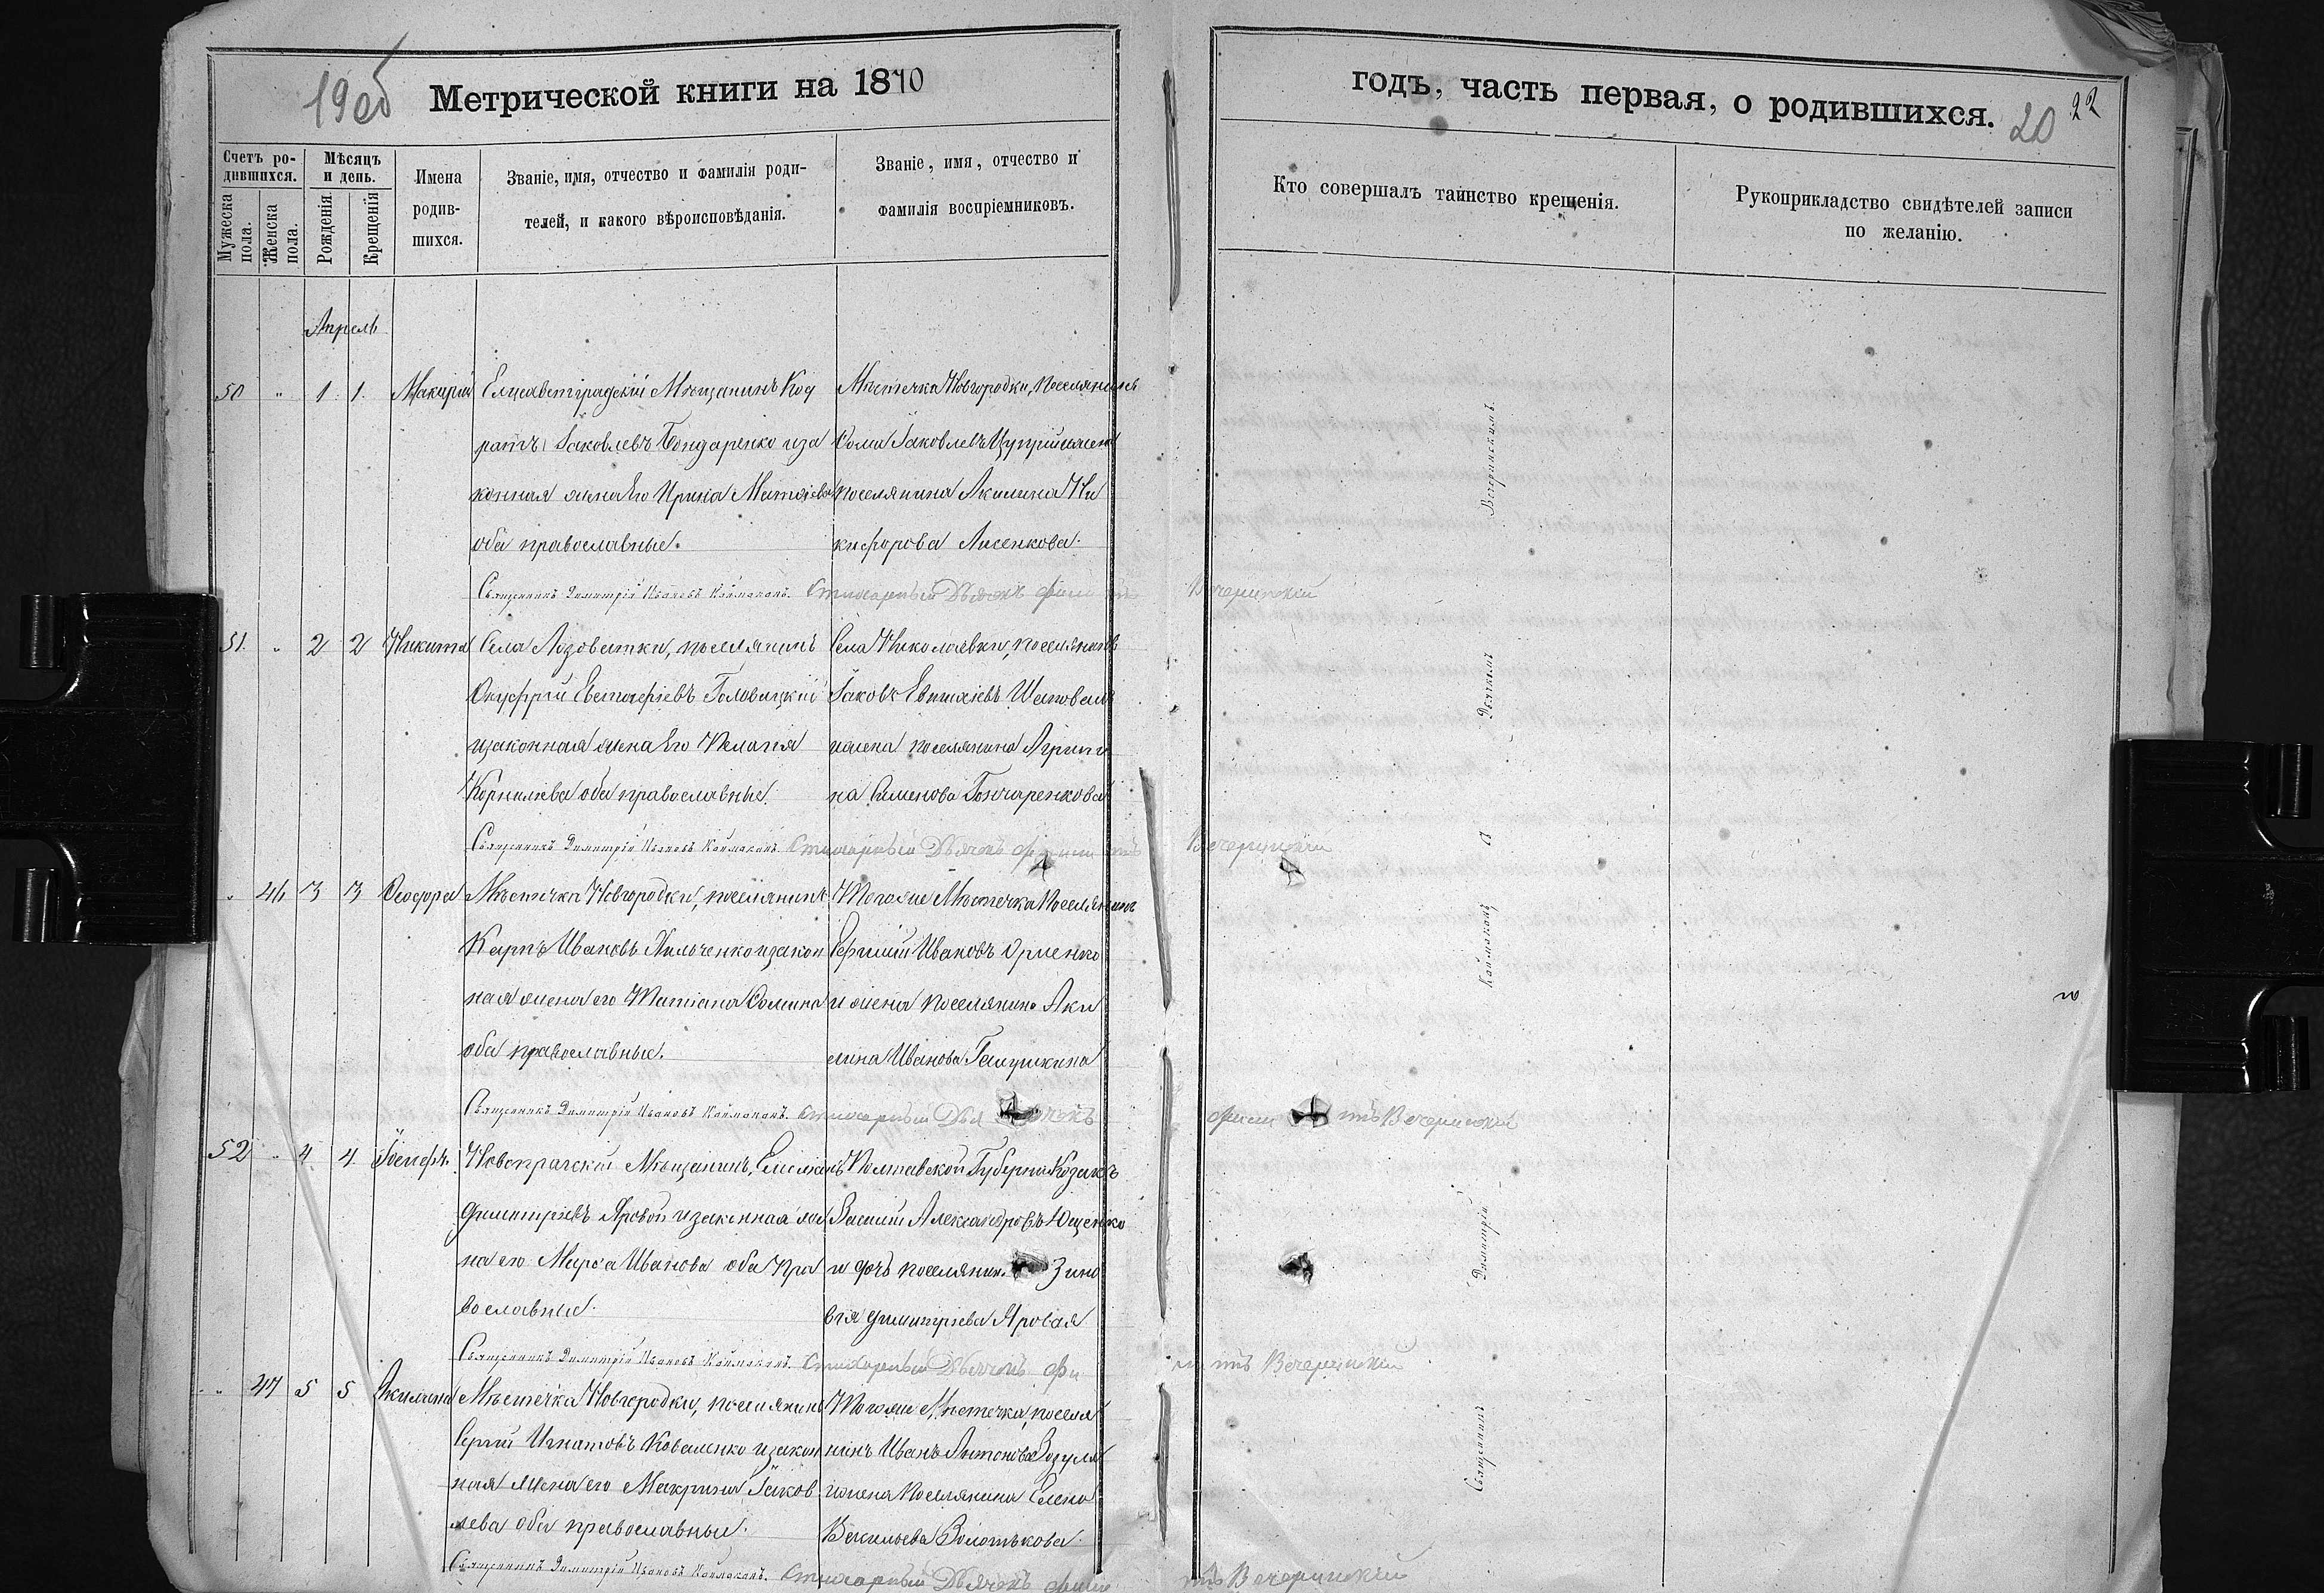 19 об
Метрической книги на 1870
годъ, часть первая, о родившихся.
20
22
Счетъ родившихся.
Мужеска пола.
Женска пола.
Мѣсяцъ и день.
Рожденія
Крещенія
Имена родившихся.
Званіе, имя, отчество и фамилія родителей, и какого вѣроисповѣданія.
Званіе, имя, отчество и фамилія воспріемниковъ.
Кто совершалъ таинство крещенія.
Рукоприкладство свидѣтелей записи по желанію.
Апрель
50 " 1. 1. Макарій
Елисаветградскій Мѣщанинъ Код
ратъ Іаковлевъ Бондаренко иза
конная жена Его Ирина Матѳіева
оба православные.
Мѣстечка Новгородки, поселянинъ
Ѳома Іаковлевъ и жена
поселянина Акилина Ни
кифорова Лисенкова.
Священникъ Димитрій Ивановъ Каймаканъ. Стихарный Дьячекъ Вечеринскій
51. " 2 2 Никита
Села Лозоватки, поселянинъ
Онуфрій Евстафіевъ Головацкій
изаконная жена Его Пелагія
Корниліева оба православные.
Села Николаевки, поселянинъ
Іаковъ Евтихіевъ Шаповалъ
ижена поселянина Агрипи
на Симонова Гончаренкова
Священникъ Димитрій Ивановъ Каймаканъ. Стихарный Дьячекъ Вечеринскій
" 46 3 3 Ѳеодора
Мѣстечка Новгородки, поселянинъ
Карпъ Ивановъ изакон
ная жена его Татіана Ѳомина
оба православные.
Тогоже Мѣстечка Поселянинъ
Ивановъ
и жена поселянина Аки
лина Иванова Галушкина
Священникъ Димитрій Ивановъ Каймаканъ. Стихарный Дьячекъ Вечеринскій
52 " 4. 4. Іосифъ.
Новопражскій Мѣщанинъ, Емеліанъ
Димитріевъ Яровой изаконная же
на его Марѳа Иванова оба пра
вославные.
Полтавской Губерніи Козакъ
Василій Александровъ Ющенко
и дочь поселянина Зино
вія Димитріева Яровая
Священникъ Димитрій Ивановъ Каймаканъ. Стихарный Дьячекъ Вечеринскій
" 47 5 5 Акилина
Мѣстечка Новгородки, поселянинъ
Сергій Игнатовъ Коваленко изакон
ная жена его Макрина Іаков
лева оба православные.
Тогоже Мѣстечка, поселя
нинъ Иванъ Антоновъ Зозуля
ижена поселянина Елена
Васильева Золотькова.
Священникъ Димитрій Ивановъ Каймаканъ. Стихарный Дьячекъ Вечеринскій
Священникъ Димитрій Каймаканъ съ Дьячкомъ Вечеринскимъ.